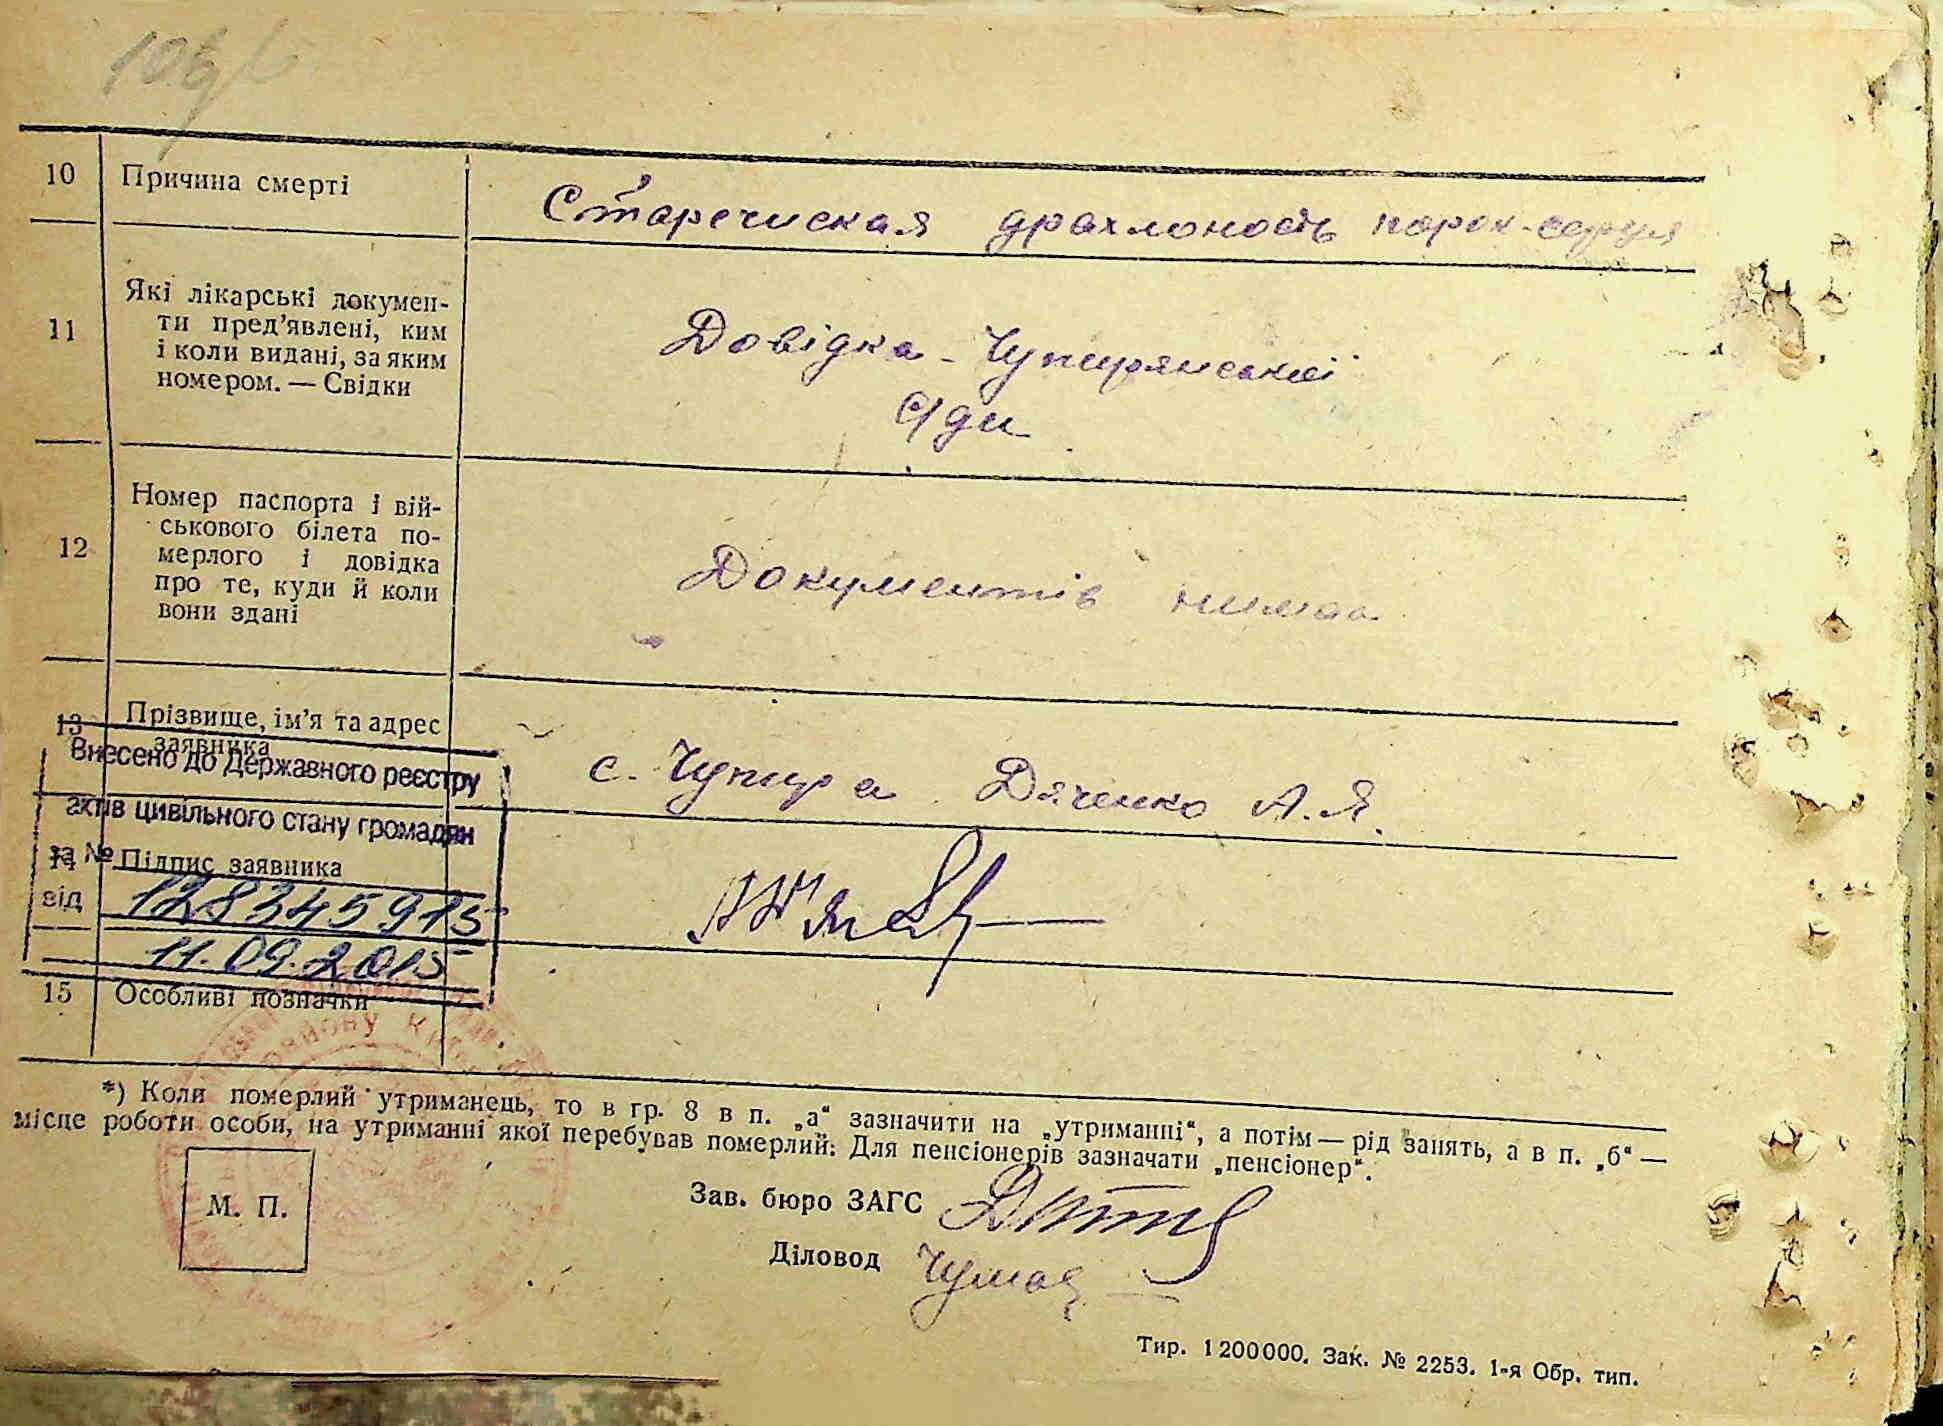 10
Причина смерті
Старечиская драхлоность порок-сердця
11
Які лікарські докумен-
ти пред'явлені, ким
і коли видані, за яким
номером. — Свідки
Довідка - Чупирянської
с/ди
12
Номер паспорта і вій-
ськового білета по-
мерлого і довідка
про те, куди й коли
вони здані
Документів нимаа
13
Прізвище, ім'я та адрес
заявника
с. Чупира Дяченко А.Я.
Внесено до Державного реєстру
актів цивільного стану громадян
за №
14
Підпис заявника
від
12834591
11.09.2015
15
Особливі позначки
*) Коли померлий утриманець, то в гр. 8 в п. „а“ зазначити на „утриманні“, а потім — рід занять, а в п. „б“ —
місце роботи особи, на утриманні якої перебував померлий: Для пенсіонерів зазначати „пенсіонер“.
М. П.
Зав. бюро ЗАГС
Діловод Чумак
Тир. 1200000. Зак. № 2253. 1-я Обр. тип.